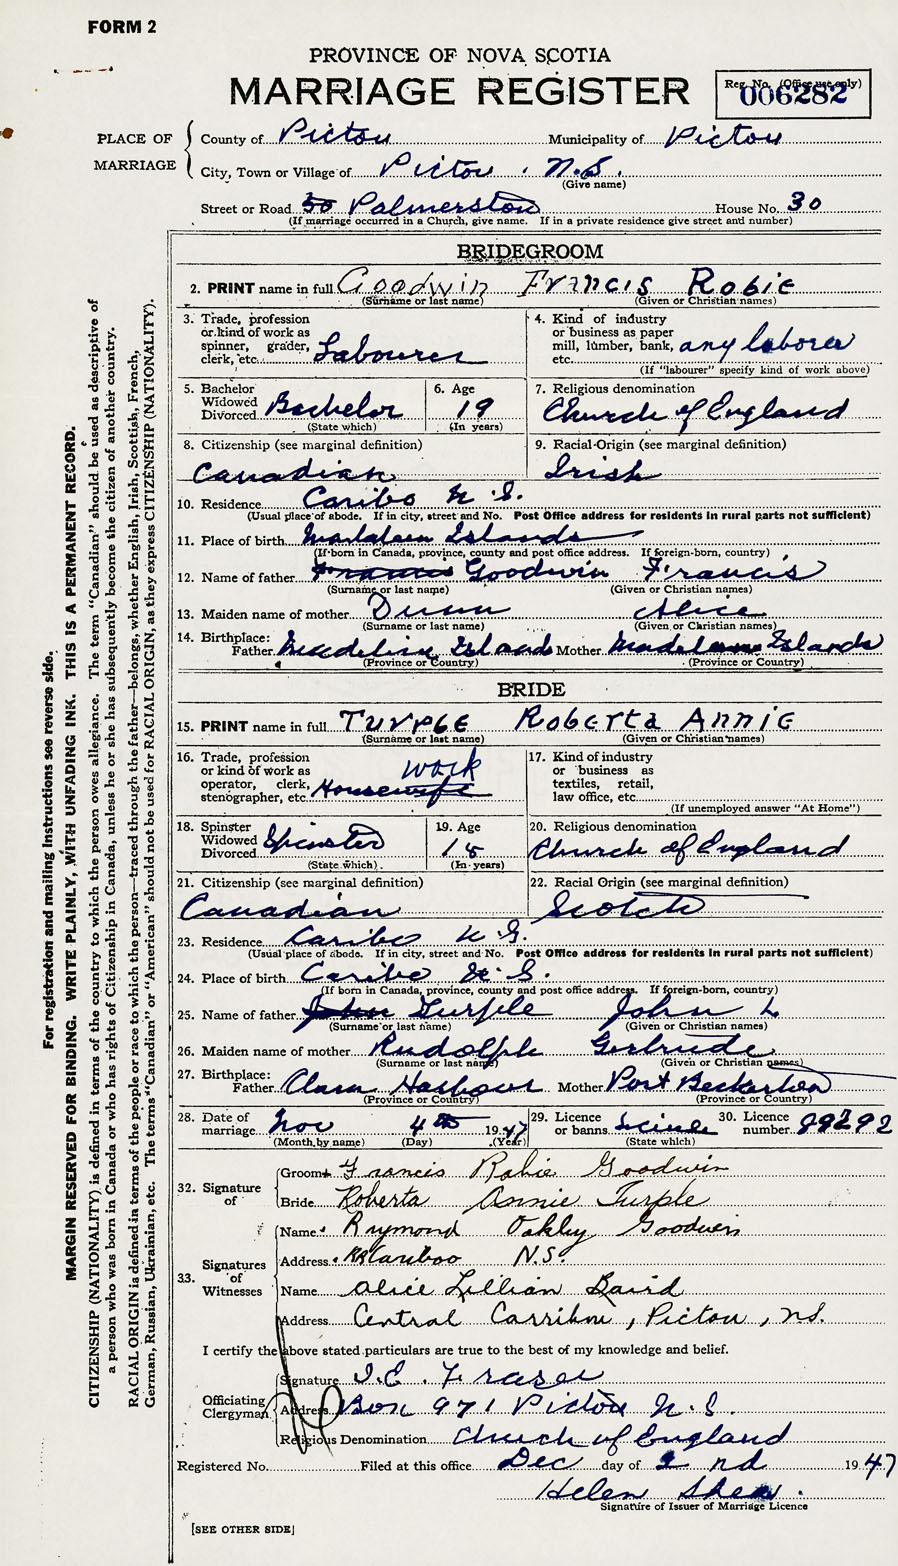 FORM 2
PROVINCE OF NOVA SCOTIA
MARRIAGE REGISTER
Reg. No. (Office use only)
006282
PLACE OF MARRIAGE
County of Pictou Municipality of Pictou
City, Town or Village of Pictou . N.S.
(Give name)
Street or Road 30 Palmerston House No. 30
(If marriage occurred in a Church, give name. If in a private residence give street and number)
BRIDEGROOM
2. PRINT name in full Goodwin Francis Robie
(Surname or last name) (Given or Christian names)
3. Trade, profession or kind of work as spinner, grader, clerk, etc. Labourer
4. Kind of industry or business as paper mill, lumber, bank, etc. any labora
(If "labourer" specify kind of work above)
5. Bachelor Widowed Divorced Bachelor
(State which)
6. Age 19
(In years)
7. Religious denomination
Church of England
8. Citizenship (see marginal definition)
Canadian
9. Racial Origin (see marginal definition)
Irish
10. Residence Caribo N.S.
(Usual place of abode. If in city, street and No. Post Office address for residents in rural parts not sufficient)
11. Place of birth Madaleen Islands
(If born in Canada, province, county and post office address. If foreign-born, country)
12. Name of father Francis Goodwin Francis
(Surname or last name) (Given or Christian names)
13. Maiden name of mother Dunn Alice
(Surname or last name) (Given or Christian names)
14. Birthplace:
Father Madelin Islands Mother Islands
(Province or Country) (Province or Country)
BRIDE
15. PRINT name in full TURPLE Roberta Annie
(Surname or last name) (Given or Christian names)
16. Trade, profession or kind of work as operator, clerk, stenographer, etc. Housewife work
17. Kind of industry or business as textiles, retail, law office, etc.
(If unemployed answer "At Home")
18. Spinster Widowed Divorced Spinster
(State which)
19. Age 18
(In years)
20. Religious denomination
Church of England
21. Citizenship (see marginal definition)
Canadian
22. Racial Origin (see marginal definition)
Scotch
23. Residence Caribo N.S.
(Usual place of abode. If in city, street and No. Post Office address for residents in rural parts not sufficient)
24. Place of birth Caribo N.S.
(If born in Canada, province, county and post office address. If foreign-born, country)
25. Name of father John Turple John L
(Surname or last name) (Given or Christian names)
26. Maiden name of mother Rudolph Gertrude
(Surname or last name) (Given or Christian names)
27. Birthplace:
Father Clam Harbour Mother Port
(Province or Country) (Province or Country)
28. Date of marriage Nov 4th 1947
(Month by name) (Day) (Year)
29. Licence or banns
(State which)
30. Licence number 89292
32. Signature of
Groom Francis Robie Goodwin
Bride Roberta Annie Turple
33. Signatures of Witnesses
Name Raymond Oakley Goodwin
Address RR Cariboo N.S.
Name Alice Lillian Baird
Address Central Carribou, Pictou, N.S.
I certify the above stated particulars are true to the best of my knowledge and belief.
Officiating Clergyman
Signature I.E. Fraser
Address Box 971 Pictou N.S
Religious Denomination Church of England
Registered No. Filed at this office Dec day of 2 nd 1947
Helen Shea
Signature of Issuer of Marriage Licence
[SEE OTHER SIDE]
For registration and mailing instructions see reverse side.
MARGIN RESERVED FOR BINDING. WRITE PLAINLY, WITH UNFADING INK. THIS IS A PERMANENT RECORD.
CITIZENSHIP (NATIONALITY) is defined in terms of the country to which the person owes allegiance. The term "Canadian" should be used as descriptive of
a person who was born in Canada or who has rights of Citizenship in Canada, unless he or she has subsequently become the citizen of another country.
RACIAL ORIGIN is defined in terms of the people or race to which the person—traced through the father—belongs, whether English, Irish, Scottish, French,
German, Russian, Ukrainian, etc. The terms "Canadian" or "American" should not be used for RACIAL ORIGIN, as they express CITIZENSHIP (NATIONALITY).